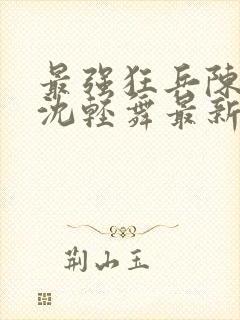 最强狂兵陈
沈轻舞最新
荆山玉